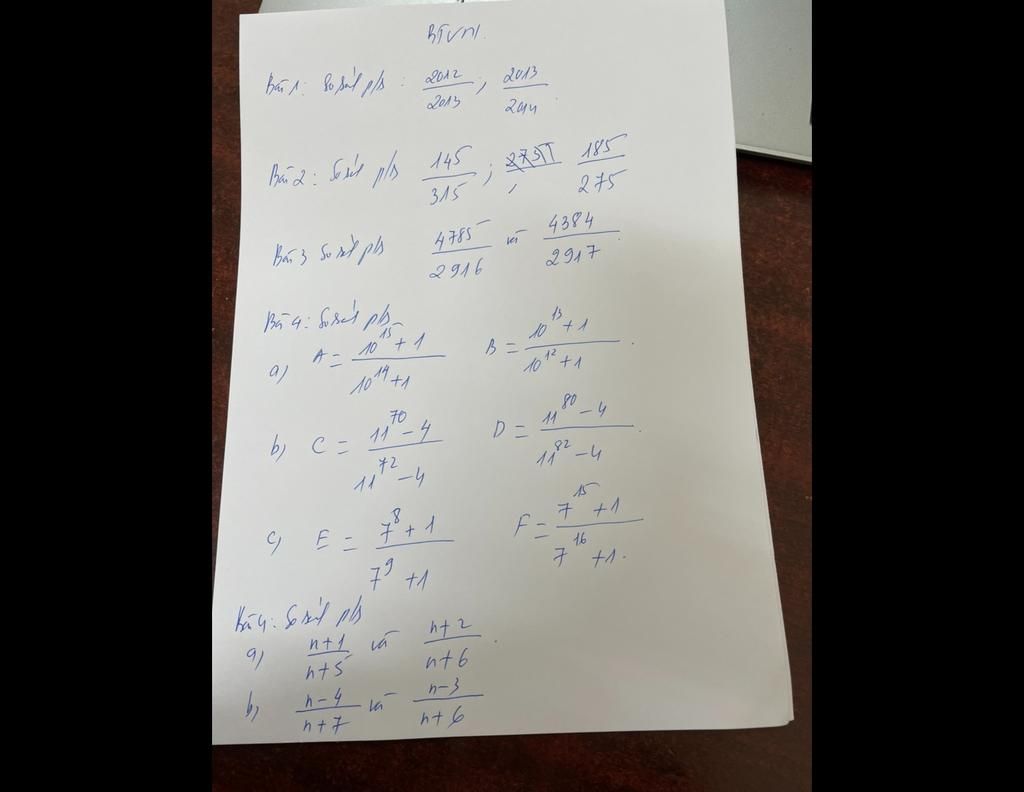 BTVN.
Bài 1: So sánh p/s : 2012/2013 ; 2013/2014.
Bài 2: So sánh p/s 145/315 ; 185/275
Bài 3 So sánh p/s 4785/2916 và 4384/2917.
Bài 4: So sánh p/s
a) A = (10^15 + 1)/(10^14 + 1) B = (10^13 + 1)/(10^12 + 1).
b) C = (11^70 - 4)/(11^72 - 4) D = (11^80 - 4)/(11^82 - 4).
c) E = (7^8 + 1)/(7^9 + 1) F = (7^15 + 1)/(7^16 + 1).
Bài 4: So sánh p/s
a) (n+1)/(n+5) và (n+2)/(n+6).
b) (n-4)/(n+7) và (n-3)/(n+6)